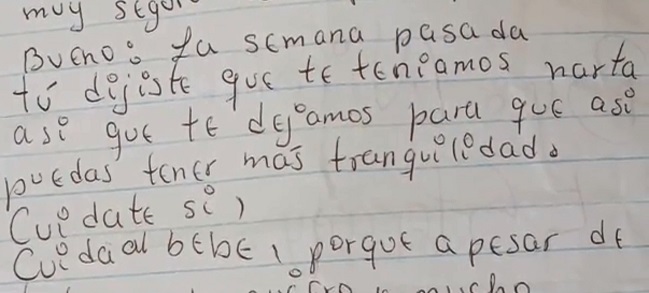 muy segur
Bueno: La semana pasada
tú dijiste que te teniamos harta
asi que te dejamos para que asi
puedas tener más tranquilidad.
Cuidate si,
Cuida al bebe, porque a pesar de
mucho